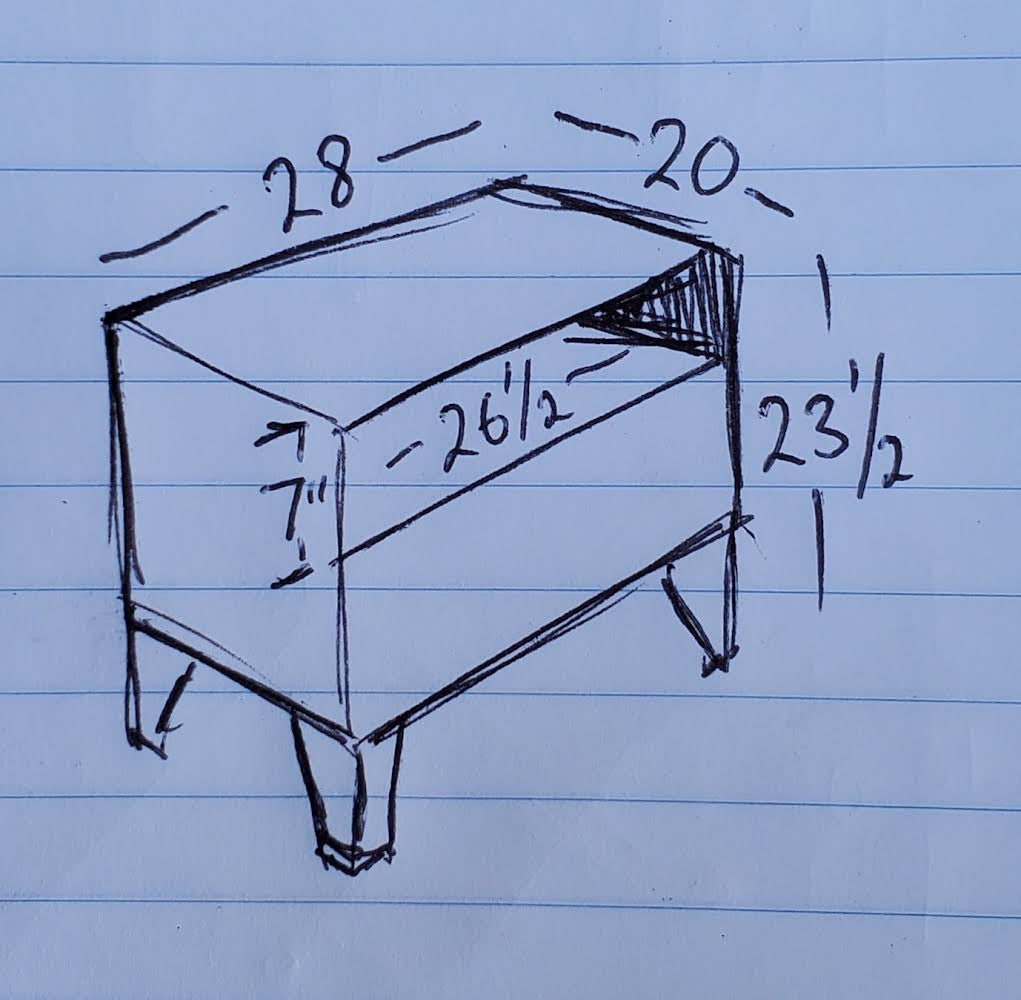 28
20
26 1/2
23 1/2
7"